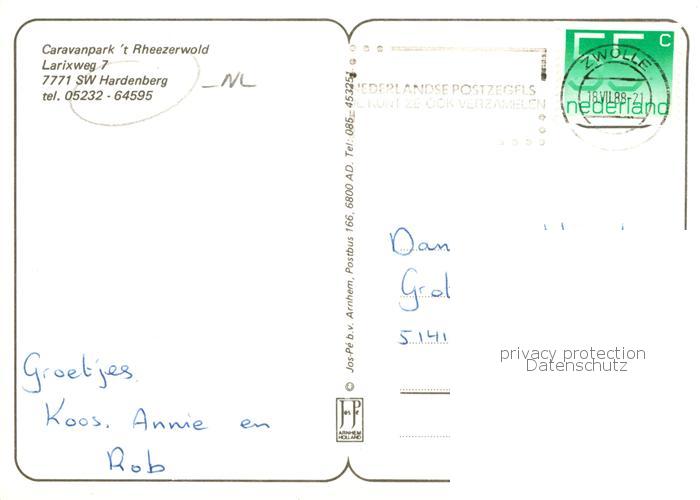 Caravanpark 't Rheezerwold
Larixweg 7
7771 SW Hardenberg
tel. 05232 - 64595
- NL
Groetjes
Koos. Annie en
Rob
© Jos-Pé b.v. Arnhem, Postbus 166, 6800 AD. Tel: 085-453251
Jos Pe
ARNHEM
HOLLAND
NEDERLANDSE POSTZEGELS
KUNT ZE OOK VERZAMELEN
55 c
nederland
ZWOLLE
18.VII.88-21
Dan
Grot
5141
privacy protection
Datenschutz